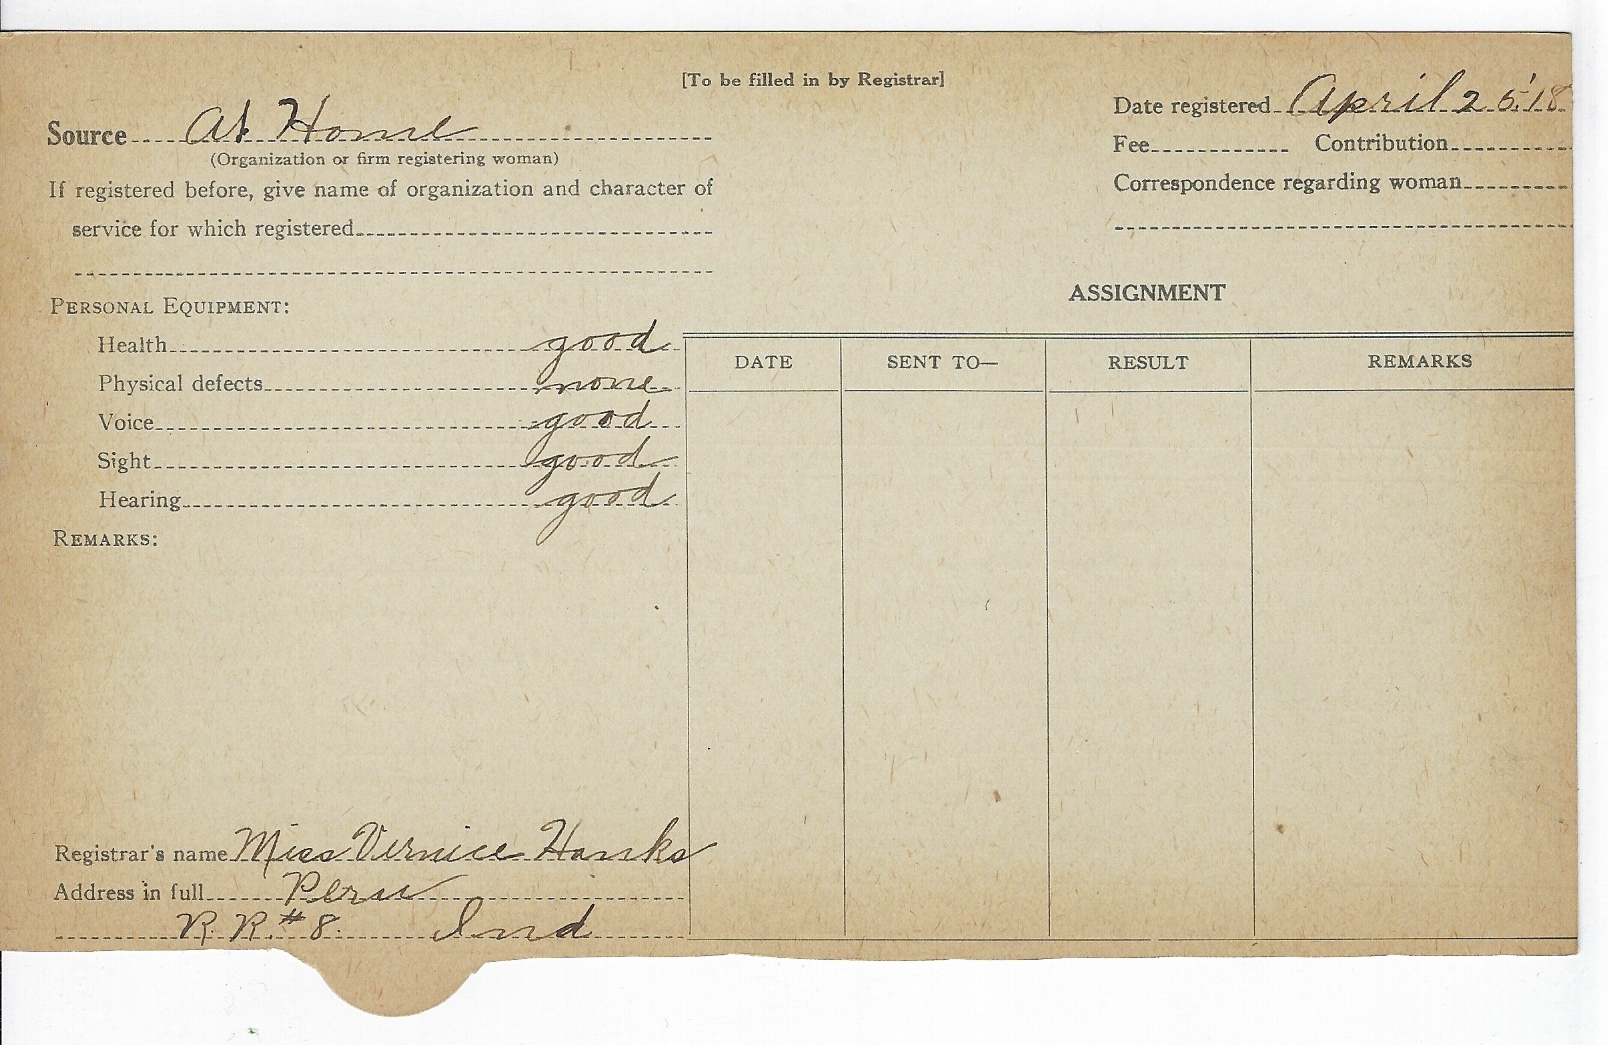 [To be filled in by Registrar]
Date registered April 25 '18
Source At Home
(Organization or firm registering woman)
Fee Contribution
If registered before, give name of organization and character of
Correspondence regarding woman
service for which registered
PERSONAL EQUIPMENT:
ASSIGNMENT
Health good
Physical defects none
Voice good
Sight good
Hearing good
DATE SENT TO— RESULT REMARKS
REMARKS:
Registrar's name Miss Vernice Hanks
Address in full Peru
R. R. #8. Ind